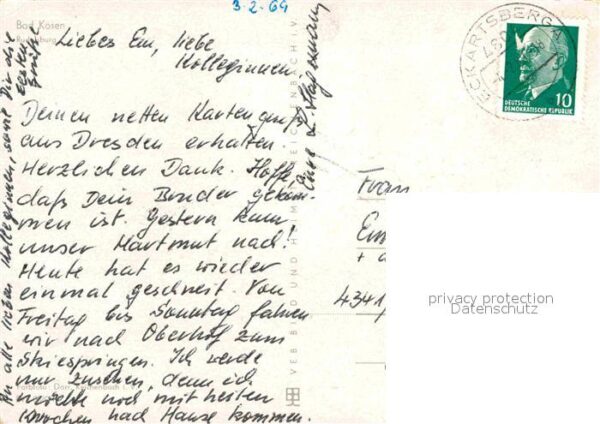 3.2.69
Bad Kösen
Rudelsburg
Liebes Em, liebe
Kolleginnen!
Deinen netten Kartengruß
aus Dresden erhalten.
Herzlichen Dank. Hoffe,
daß Dein Bruder gekom-
men ist. Gestern kam
unser Hartmut nach!
Heute hat es wieder
einmal geschneit. Von
Freitag bis Sonntag fahren
wir nach Oberhof zum
Skiespringen. Ich werde
nur zusehen, denn ich
möchte noch mit heilen
Knochen nach Hause kommen.
An alle lieben Kolleginnen, sowie Dir die
besten
Grüße
Eure L. Hagemann
VEB BILD UND HEIMAT REICHENBACH I. V.
Reichenbach i. V.
ECKARTSBERGA
DEUTSCHE
DEMOKRATISCHE REPUBLIK
10
Frau
4341
privacy protection
Datenschutz